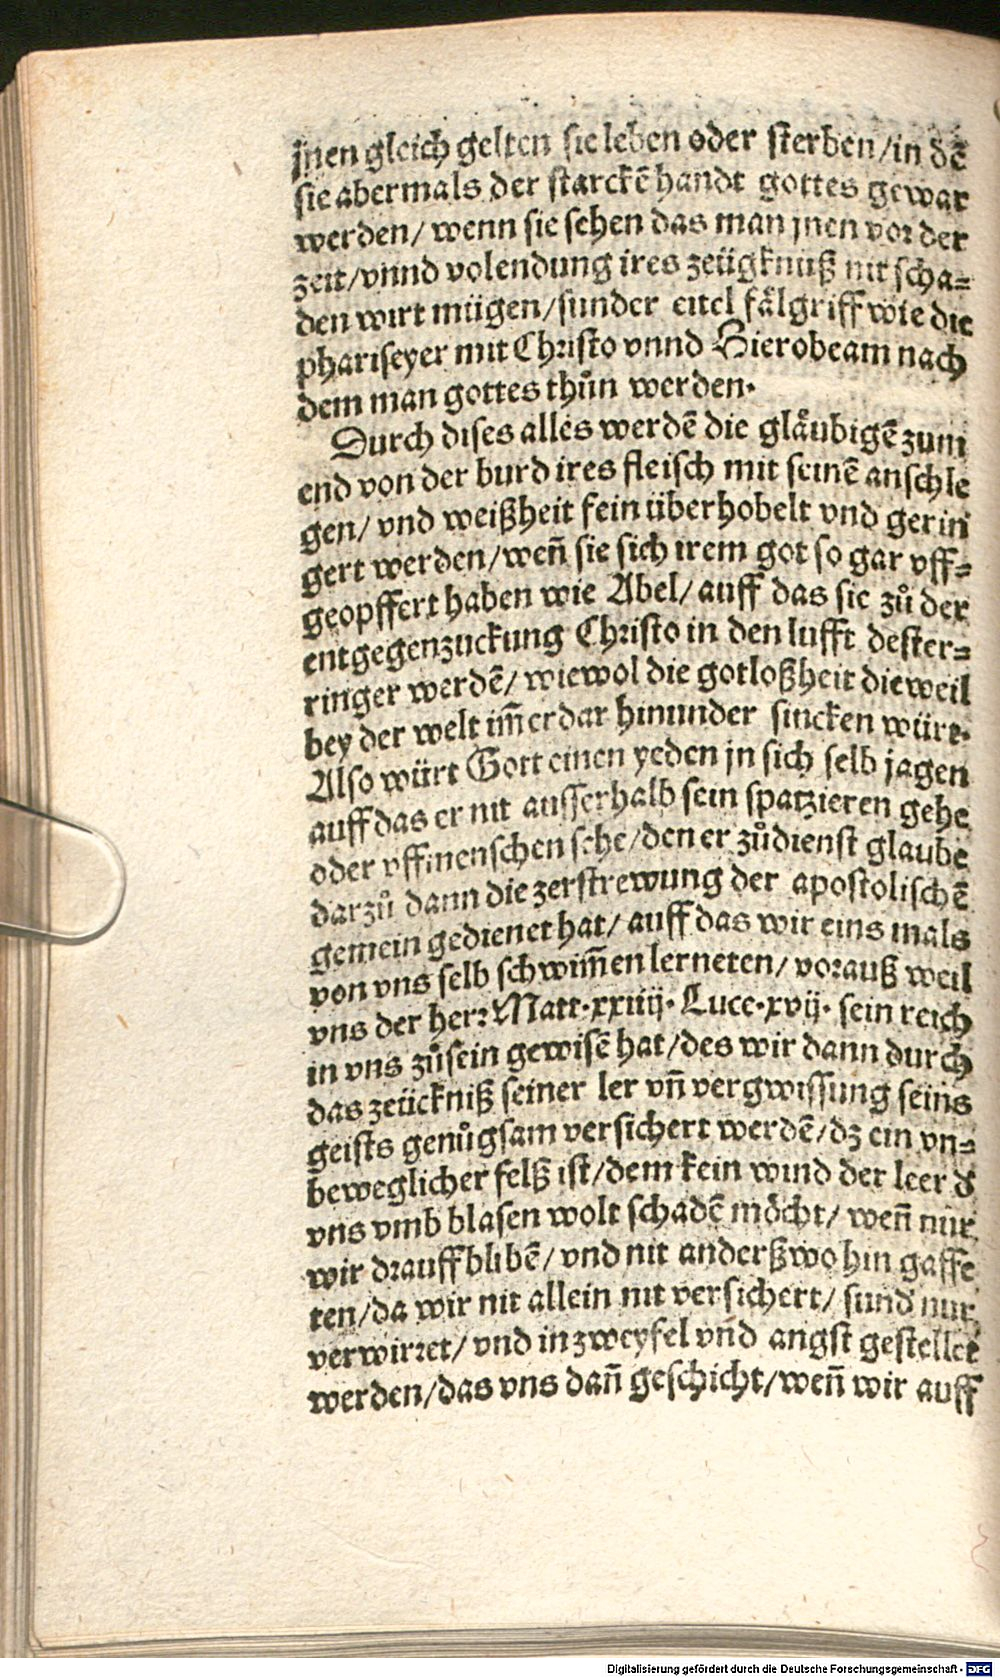 jnen gleich gelten sie leben oder sterben/in dē
sie abermals der starckē handt gottes gewar
werden/ wenn sie sehen das man jnen vor der
zeit/vnnd volendung ires zeügknuß nit scha⸗
den wirt mügen/sunder eitel fålgriff wie die
phariseyer mit Christo vnnd Hierobeam nach
dem man gottes thůn werden.
Durch dises alles werdē die glåubigē zum
end von der burd ires fleisch mit seinē anschle
gen/ vnd weißheit fein überhobelt vnd gerin
gert werden/weñ sie sich irem got so gar vff⸗
geopffert haben wie Abel/ auff das sie zů der
entgegenzuckung Christo in den lufft dester⸗
ringer werdē/ wiewol die gotloßheit dieweil
bey der welt im̄erdar hinunder sincken würt.
Also würt Gott einen yeden jn sich selb jagen
auff das er nit ausserhalb sein spatzieren gehe
oder vff menschen sehe/den er zůdienst glaube
darzů dann die zerstrewung der apostolischē
gemein gedienet hat/ auff das wir eins mals
von vns selb schwim̄en lerneten/ vorauß weil
vns der herr Matt.xxiiij. Luce.xvij. sein reich
in vns zůsein gewisē hat/des wir dann durch
das zeückniß seiner ler vñ vergwissung seins
geists genůgsam versichert werdē/dz ein vn⸗
beweglicher felß ist/dem kein wind der leer d̕
vns vmb blasen wolt schadē möcht/ weñ nur
wir drauff blibē/ vnd nit anderßwo hin gaffe
ten/da wir nit allein nit versichert/ sund̕ nur
verwirret/ vnd in zweyfel vñd angst gestellet
werden/das vns dañ geschicht/weñ wir auff
Digitalisierung gefördert durch die Deutsche Forschungsgemeinschaft - DFG